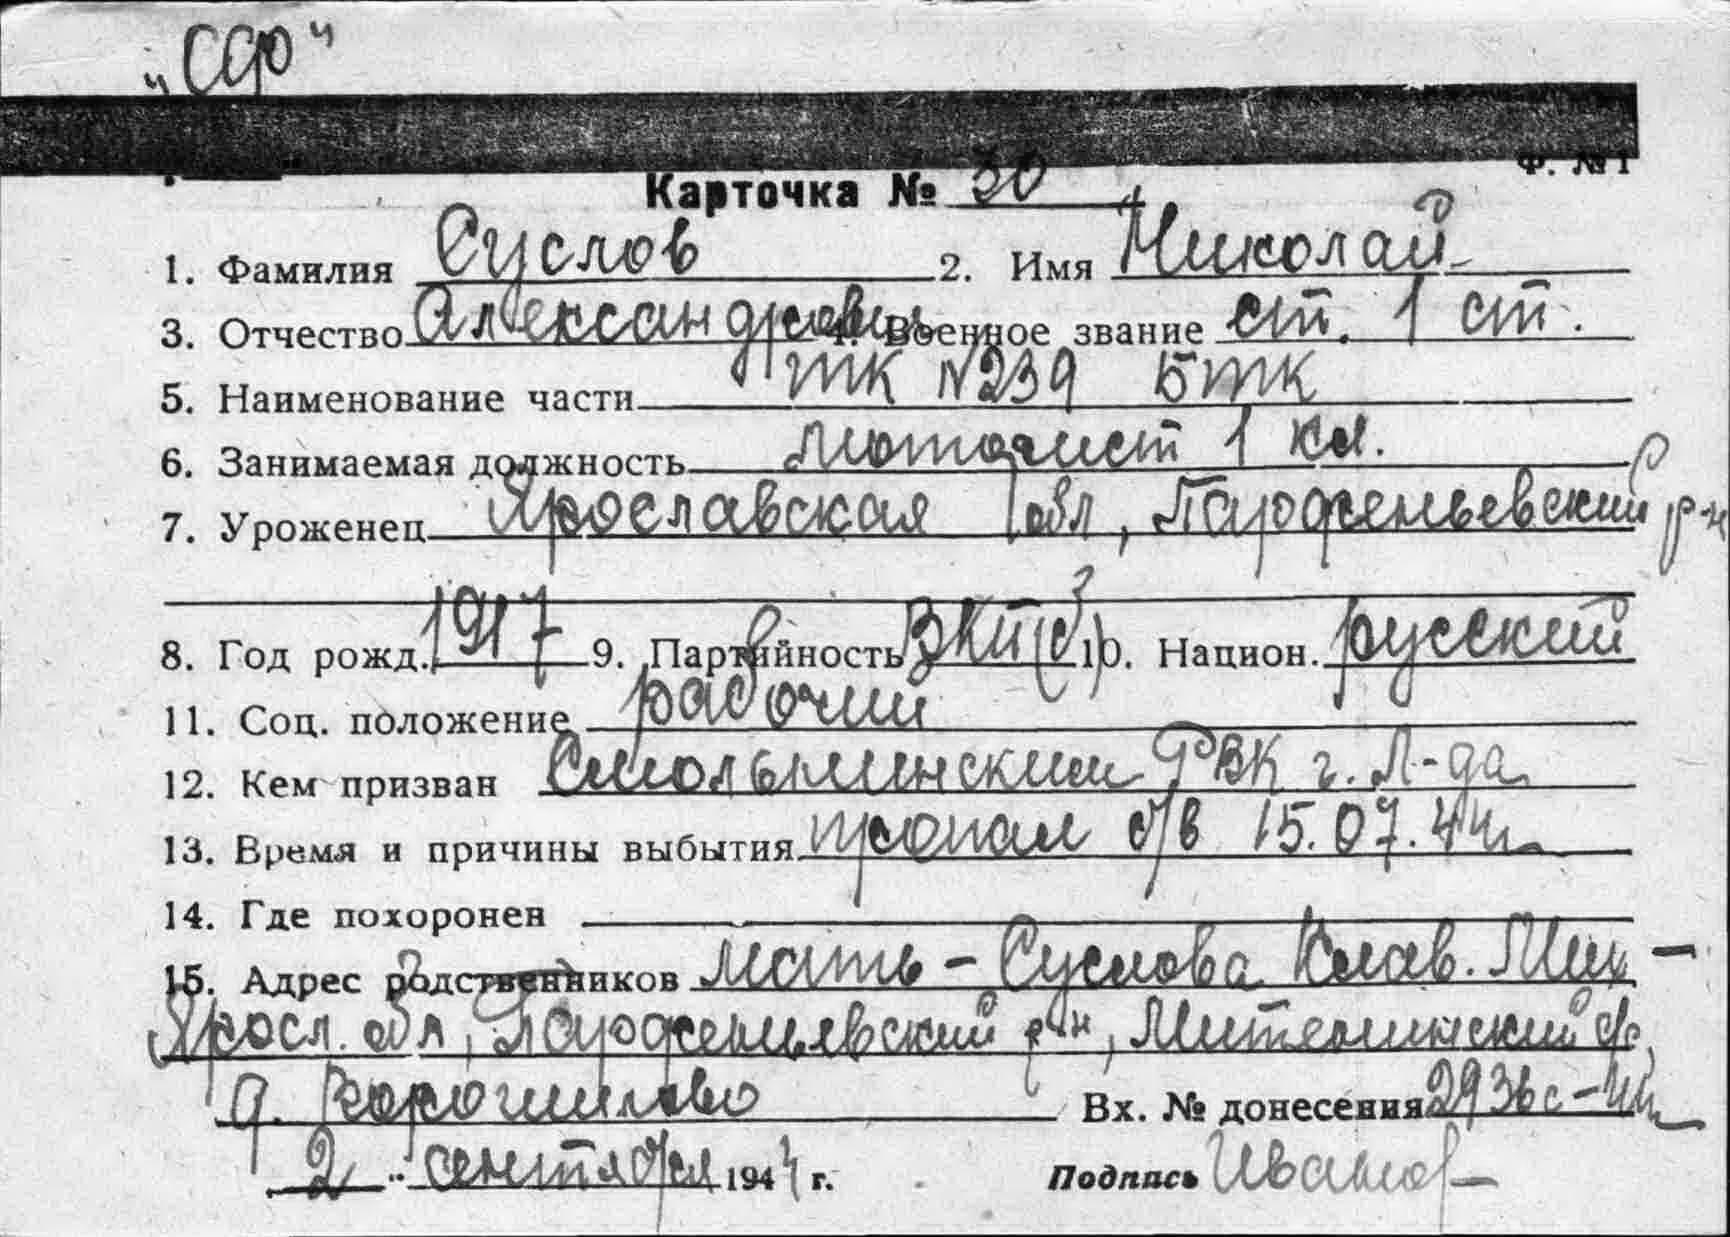 „СФ"
Ф. № 1
Карточка № 30
1. Фамилия Суслов 2. Имя Николай
3. Отчество Александрович 4. Военное звание ст. 1 ст.
5. Наименование части ТК №239 БТК
6. Занимаемая должность моторист 1 кл.
7. Уроженец Ярославская обл, Парфеньевский р-н
8. Год рожд. 1917 9. Партийность ВКП(б) 10. Национ. русский
11. Соц. положение рабочий
12. Кем призван Смольнинским РВК г. Л-да
13. Время и причины выбытия пропал б/в 15.07.44г.
14. Где похоронен
15. Адрес родственников мать - Суслова Клав. Мих -
Яросл. обл, Парфеньевский р-н, Мителинский с/с,
д. Ворошилово Вх. № донесения 2936с-44г
2 " сентября 1944 г. Подпись Иванов